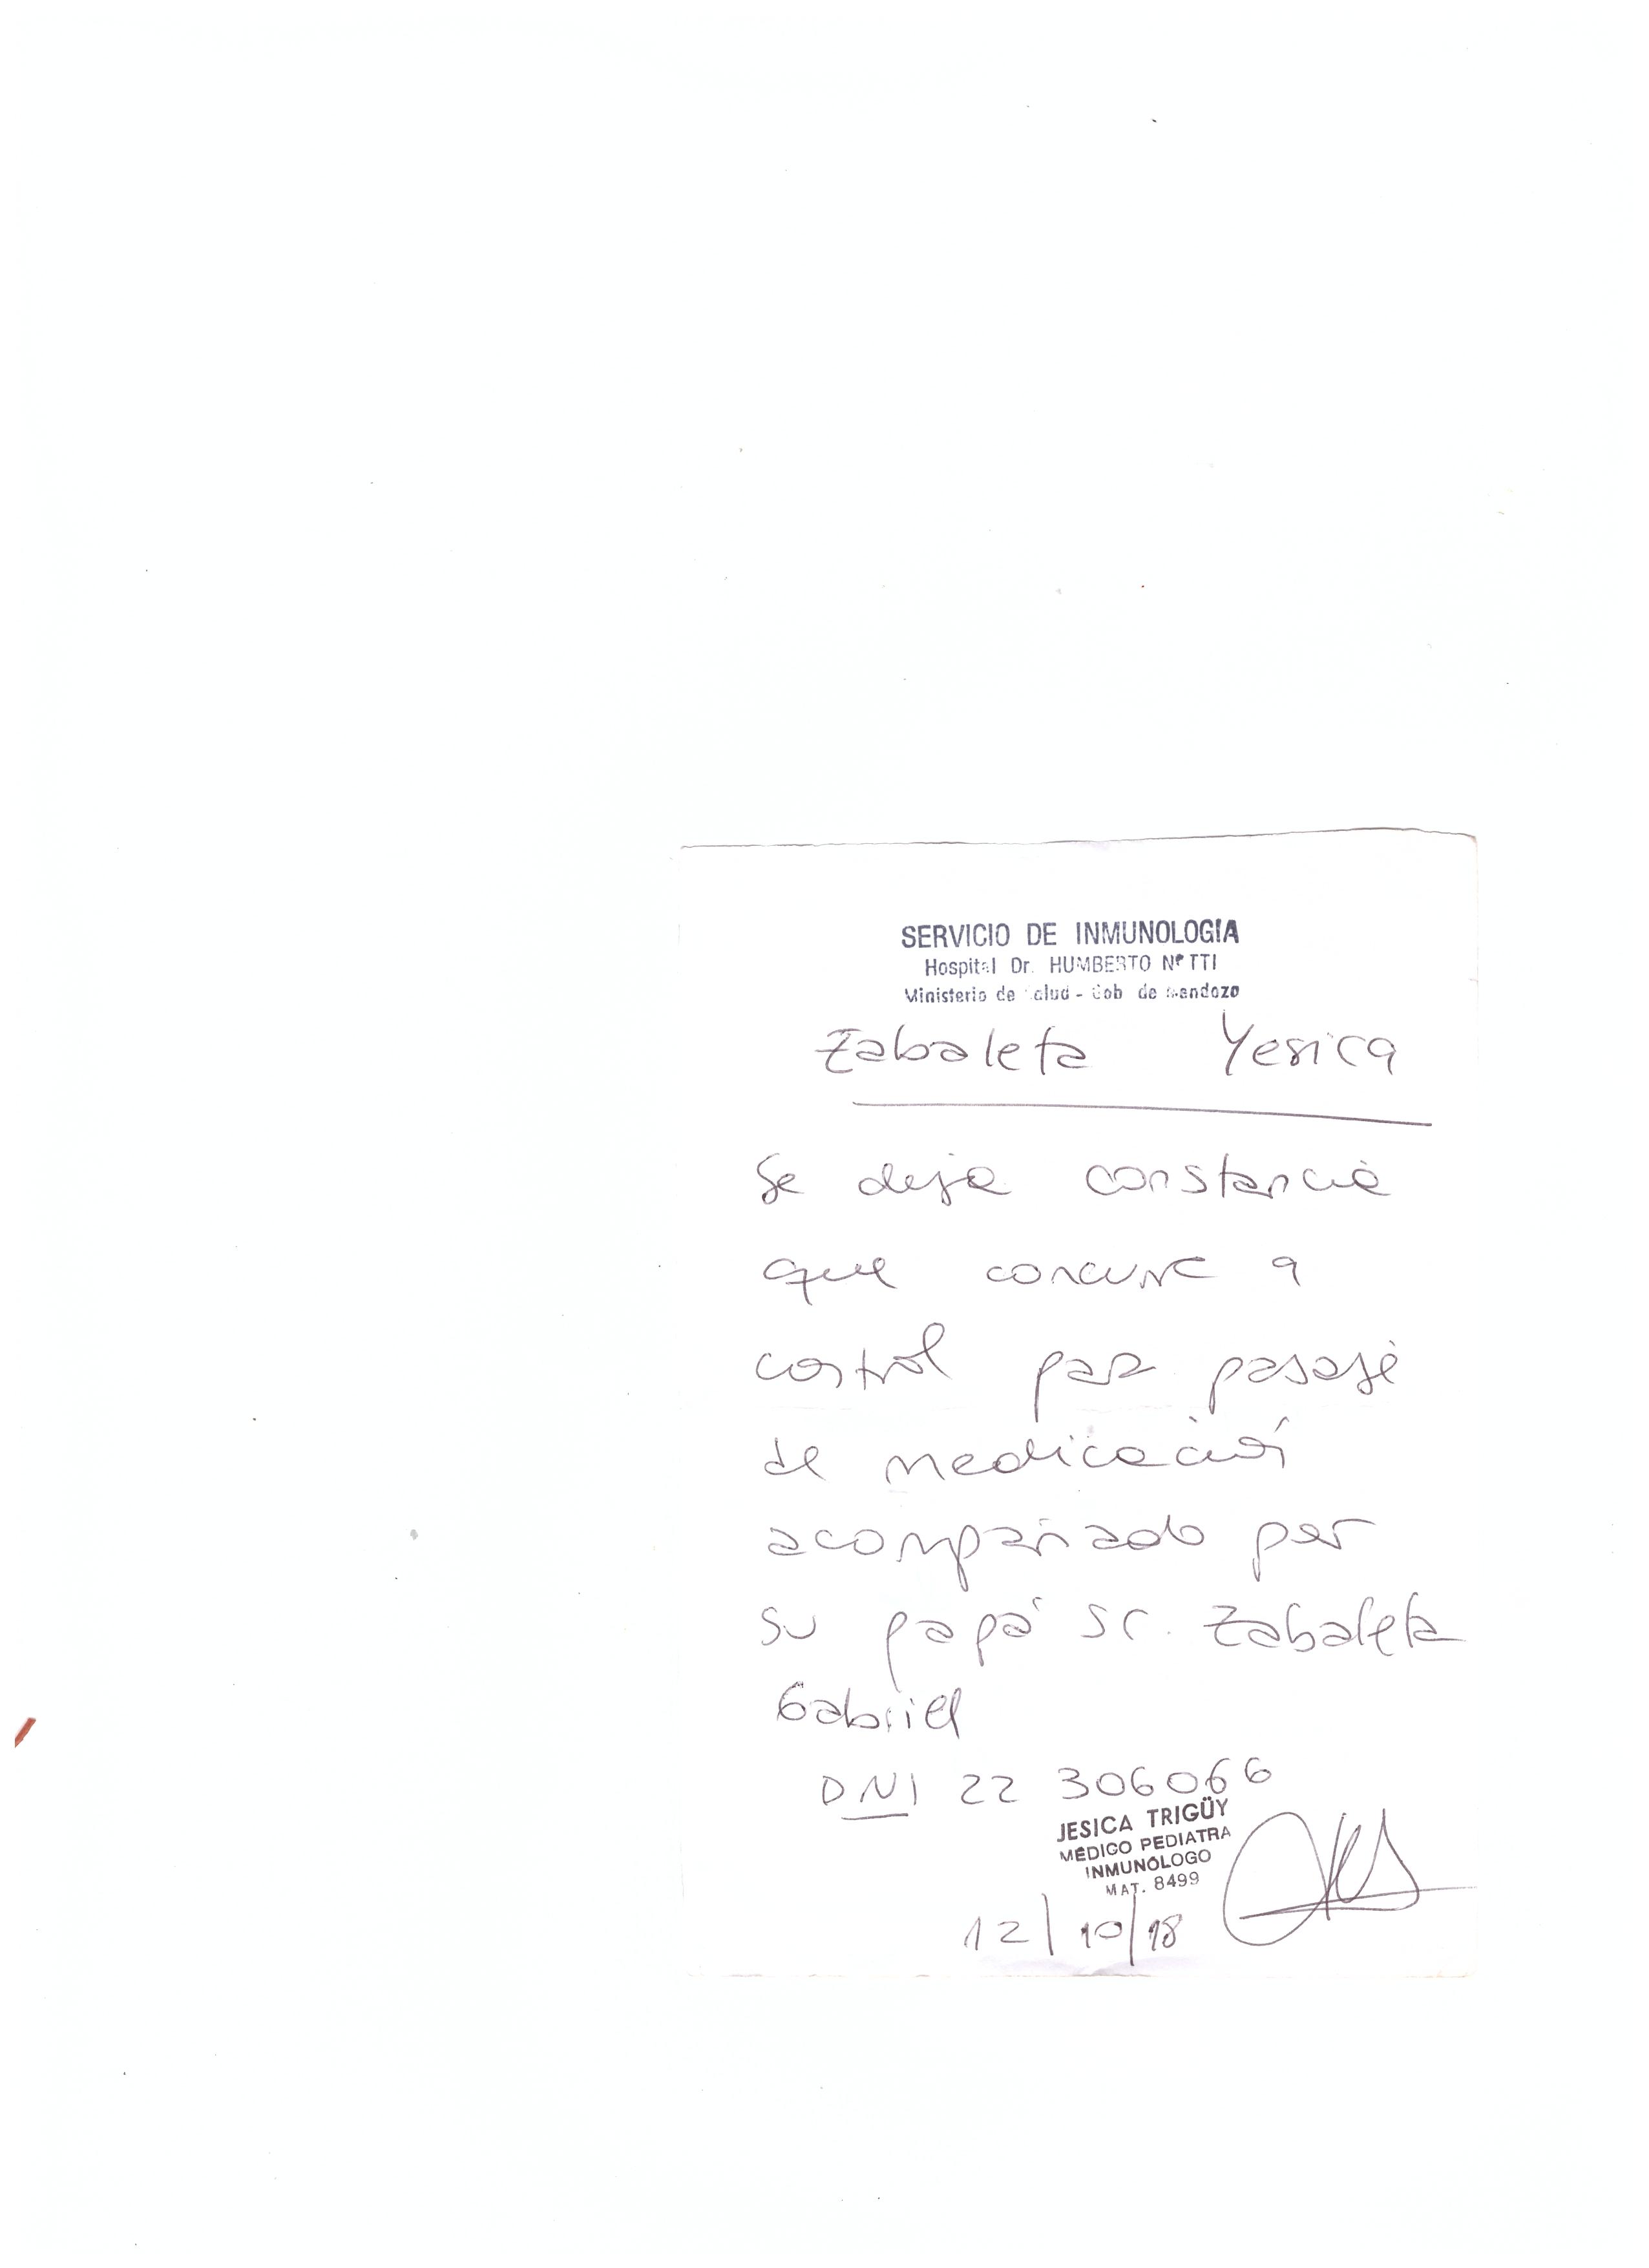 SERVICIO DE INMUNOLOGIA
Hospital Dr. HUMBERTO NOTTI
Ministerio de Salud - Gob de Mendoza
Zabaleta Yesica
Se deja constancia
que concurre a
control para pasaje
de medicación
acompañado por
su papá Sr. Zabaleta
Gabriel
DNI 22 306066
JESICA TRIGÜY
MÉDICO PEDIATRA
INMUNÓLOGO
MAT. 8499
12/10/18